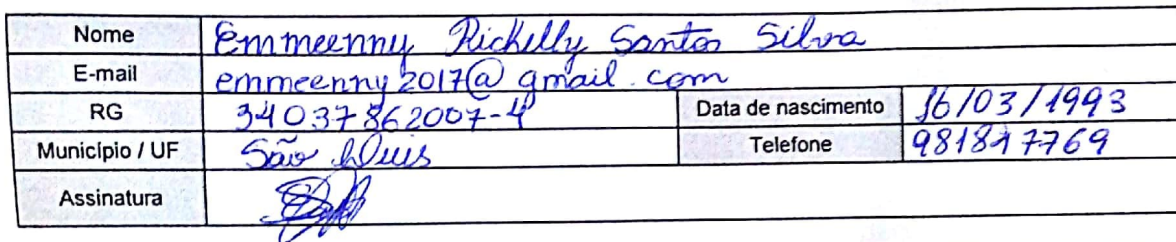 Nome Emmeenny Rickelly Santos Silva
E-mail emmeenny2017@gmail.com
RG 34037862007-4 Data de nascimento 16/03/1993
Município / UF São Luis Telefone 981817769
Assinatura